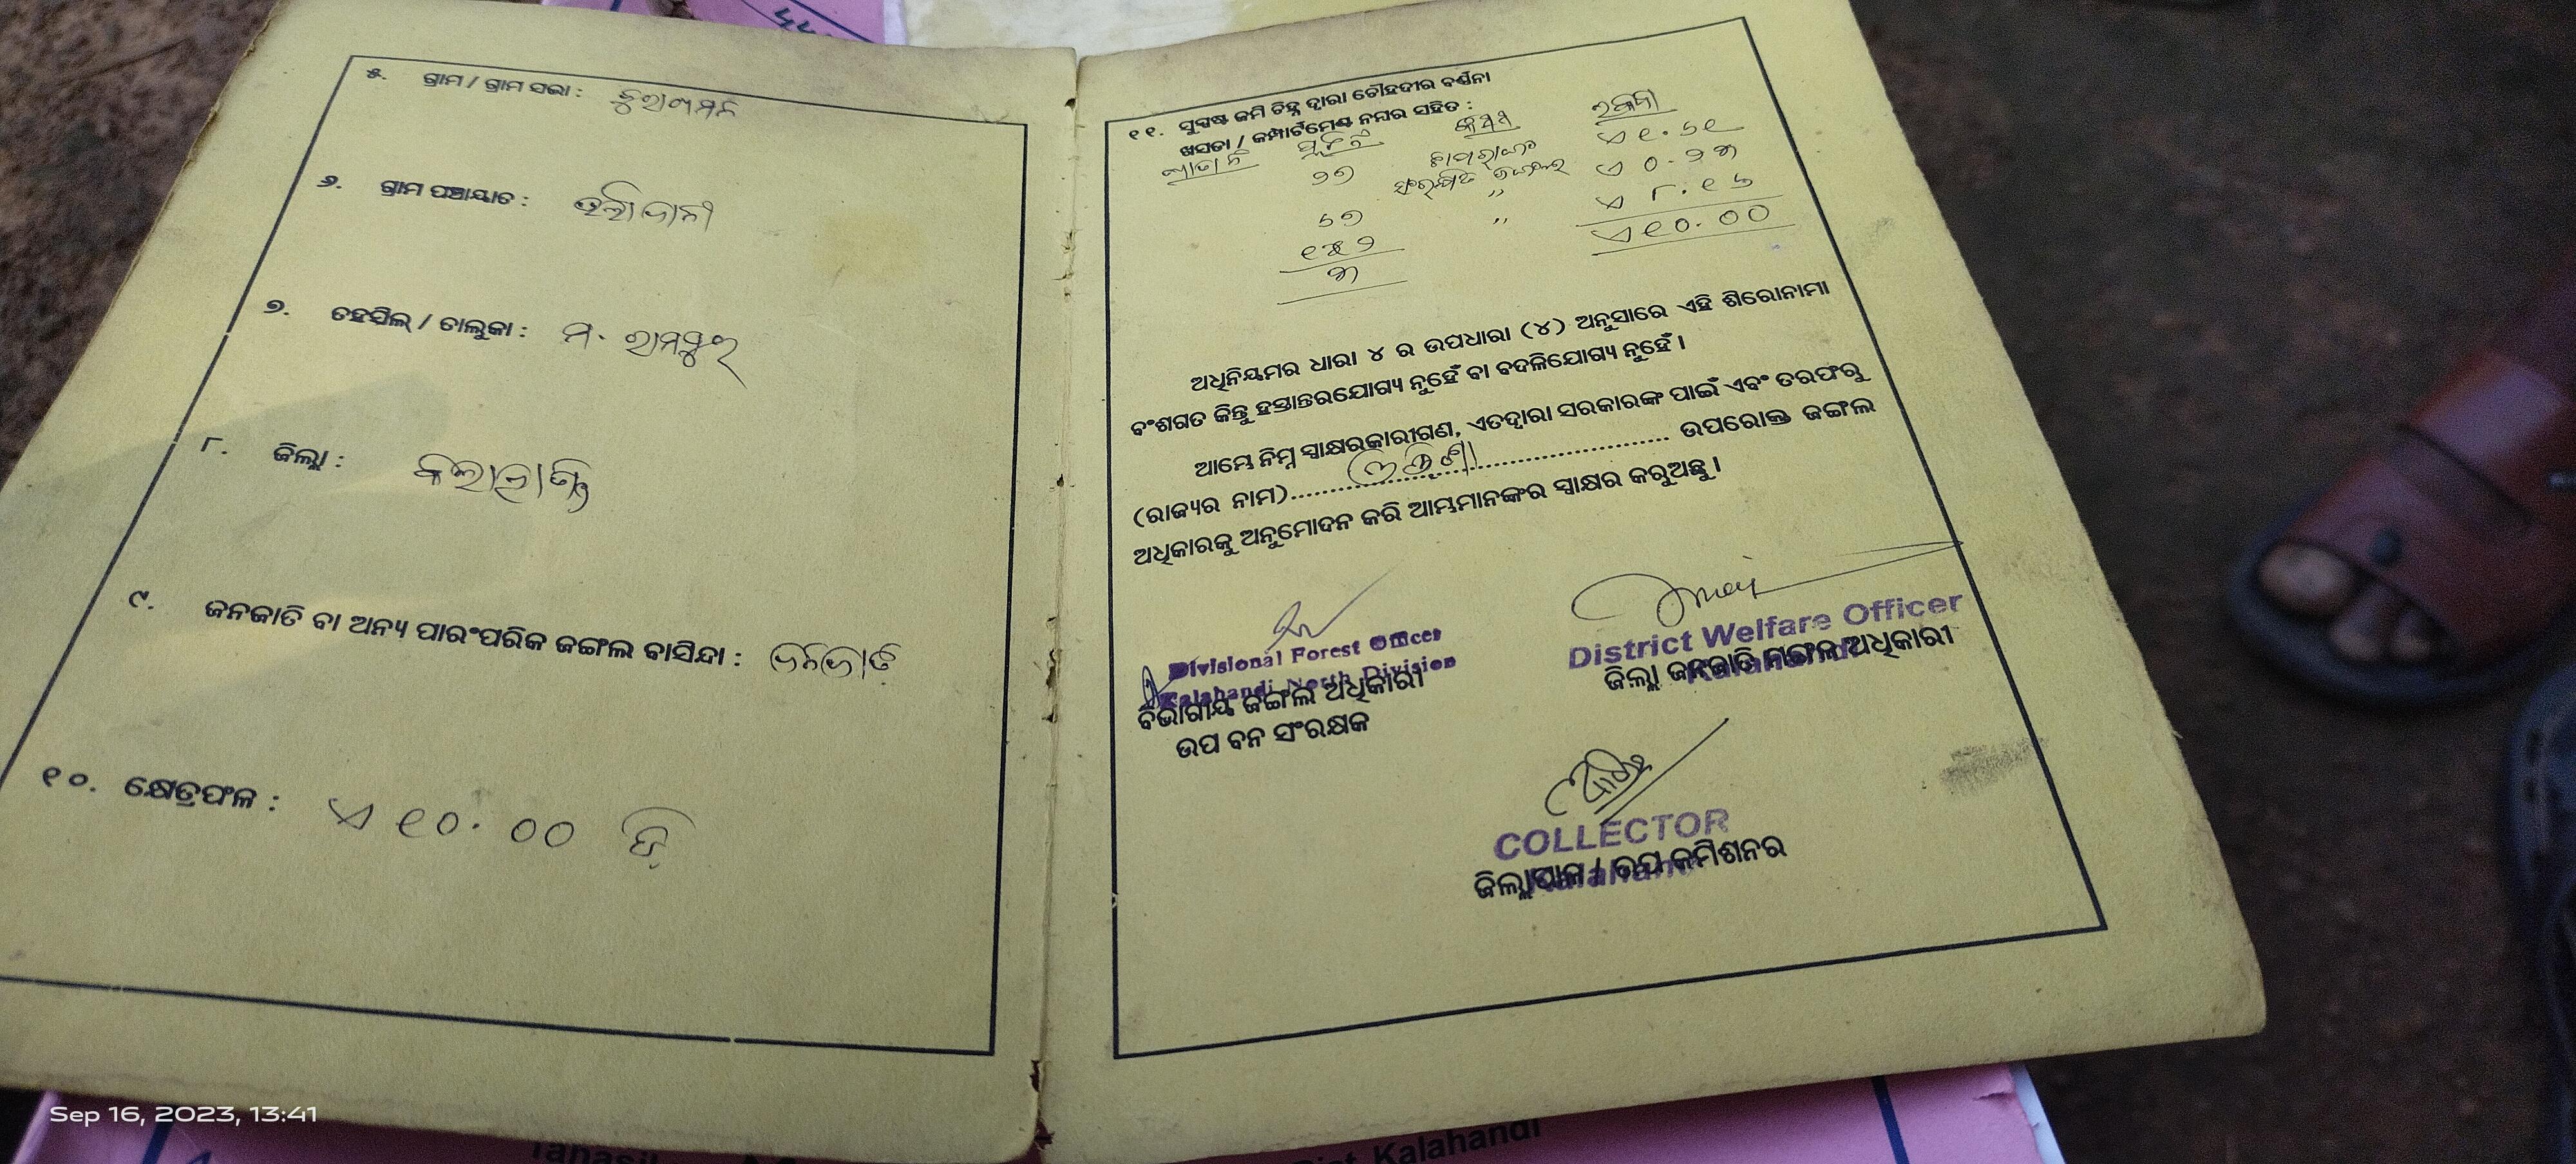 ୫. ଗ୍ରାମ / ଗ୍ରାମ ସଭା :
୬. ଗ୍ରାମ ପଞ୍ଚାୟାତ :
୭. ତହସିଲ୍ / ତାଲୁକା : ମ. ରାମପୁର
୮. ଜିଲ୍ଲା : କଳାହାଣ୍ଡି
୯. ଜନଜାତି ବା ଅନ୍ୟ ପାରଂପରିକ ଜଙ୍ଗଲ ବାସିନ୍ଦା : ଜନଜାତି
୧୦. କ୍ଷେତ୍ରଫଳ : ଏ ୧୦.୦୦ ଡି
୧୧. ସୁସ୍ପଷ୍ଟ ଜମି ଚିହ୍ନ ଦ୍ୱାରା ଚୌହଦୀର ବର୍ଣ୍ଣନା
ଖସଡା / କମ୍ପାର୍ଟମେଣ୍ଟ ନମ୍ବର ସହିତ :
ଖାତା ନଂ ପ୍ଲଟ ନଂ କିସମ ରକବା
୨୭ ଏ ୧.୬୧
ସଂରକ୍ଷିତ ଜଙ୍ଗଲ ଏ ୦.୨୩
୬୭ ,, ଏ ୮.୧୬
୧୫୨ ,, ଏ ୧୦.୦୦
୩
ଅଧିନିୟମର ଧାରା ୪ ର ଉପଧାରା (୪) ଅନୁସାରେ ଏହି ଶିରୋନାମା
ବଂଶଗତ କିନ୍ତୁ ହସ୍ତାନ୍ତରଯୋଗ୍ୟ ନୁହେଁ ବା ବଦଳିଯୋଗ୍ୟ ନୁହେଁ ।
ଆମ୍ଭେ ନିମ୍ନ ସ୍ୱାକ୍ଷରକାରୀଗଣ, ଏତଦ୍ୱାରା ସରକାରଙ୍କ ପାଇଁ ଏବଂ ତରଫରୁ
(ରାଜ୍ୟର ନାମ)........ଓଡିଶା........ ଉପରୋକ୍ତ ଜଙ୍ଗଲ
ଅଧିକାରକୁ ଅନୁମୋଦନ କରି ଆମ୍ଭମାନଙ୍କର ସ୍ୱାକ୍ଷର କରୁଅଛୁ ।
Divisional Forest Officer
Kalahandi North Division
ବିଭାଗୀୟ ଜଙ୍ଗଲ ଅଧିକାରୀ
ଉପ ବନ ସଂରକ୍ଷକ
District Welfare Officer
Kalahandi
ଜିଲ୍ଲା ଜନଜାତି ମଙ୍ଗଳ ଅଧିକାରୀ
COLLECTOR
Kalahandi
ଜିଲ୍ଲାପାଳ / ଉପ କମିଶନର
Sep 16, 2023, 13:41
Tahasil
Dist. Kalahandi